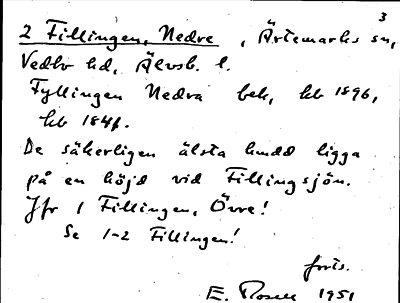 3
2 Fillingen, Nedre , Ärtemarks sn,
Vedbo hd, Älvsb. l.
Fyllingen Nedra bek, kb 1896,
kb 1841.
De säkerligen älsta hmdd ligga
på en höjd vid Fillingsjön.
Jfr 1 Fillingen, Övre!
Se 1-2 Fillingen!
forts.
E. 1951